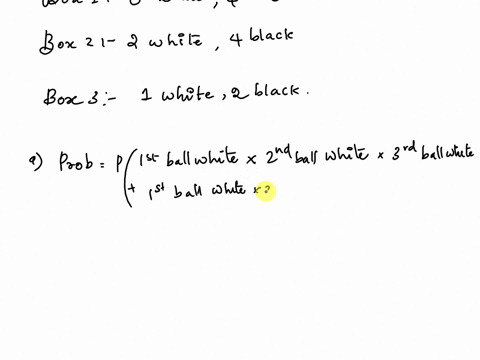 Box 2 :- 2 white , 4 black
Box 3 :- 1 white , 2 black .
a) Prob = P ( 1st ball white × 2nd ball white × 3rd ball white
+ 1st ball white ×